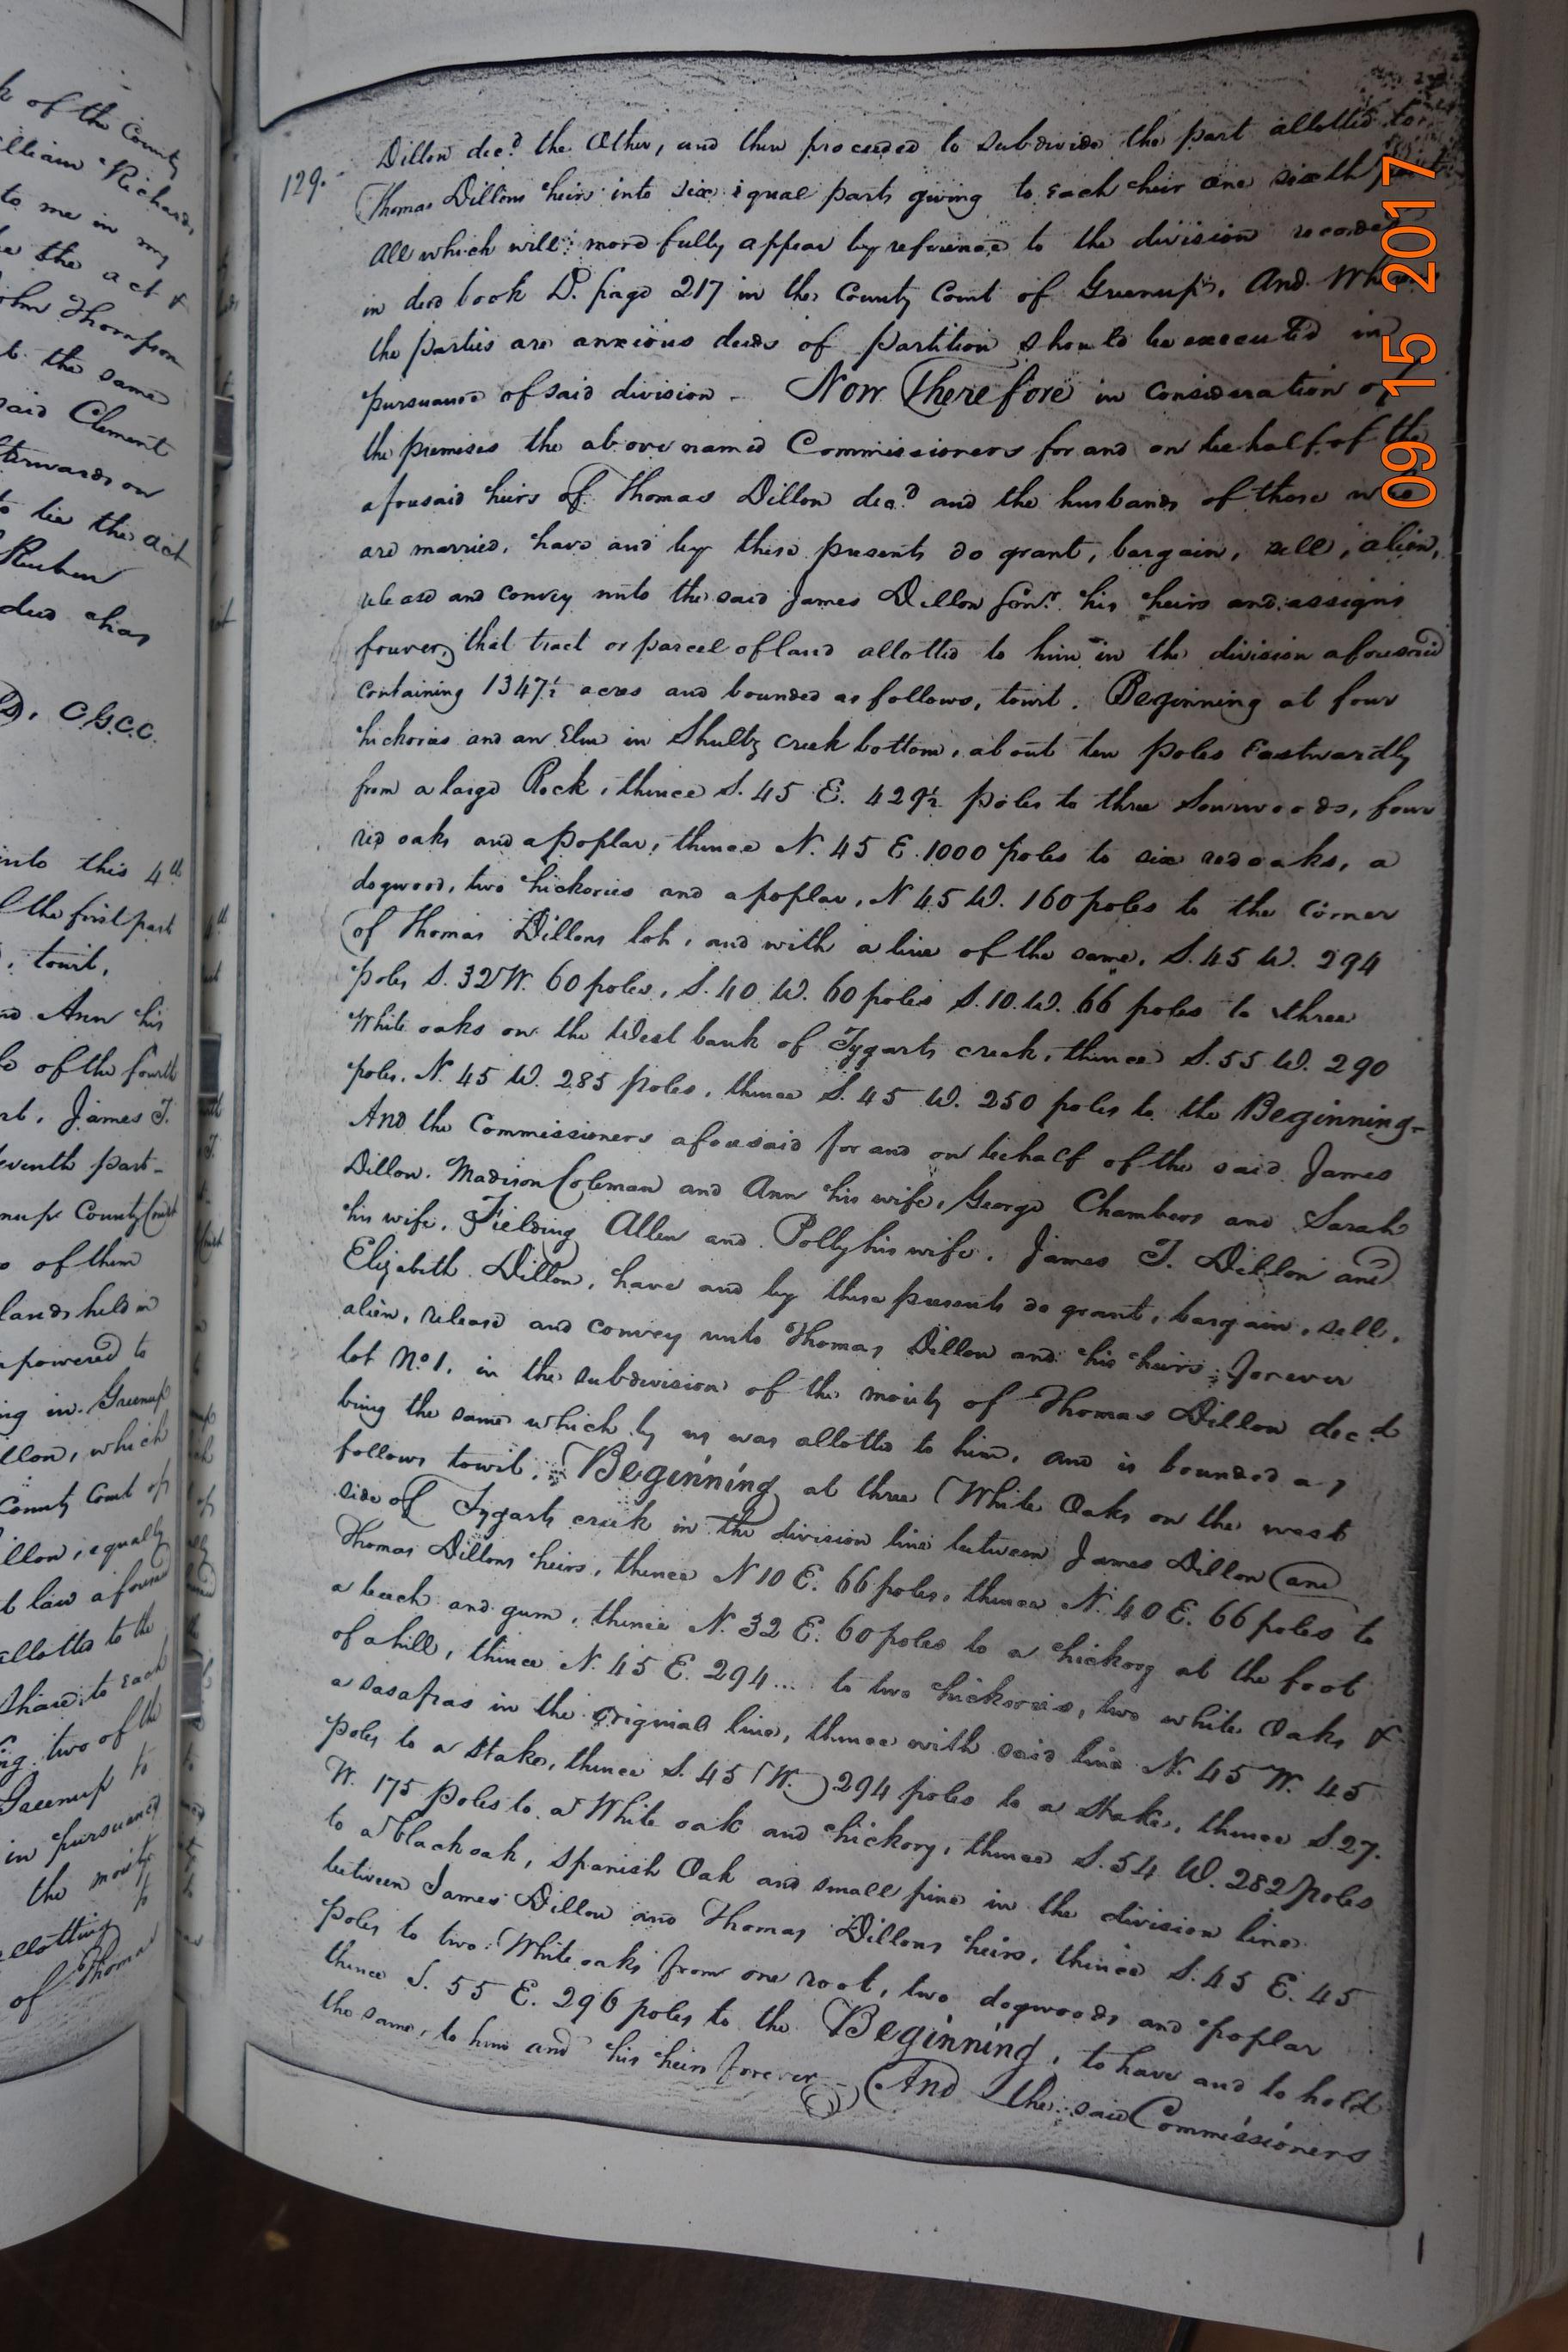 k of the County
illiam Richard
to me in my
be the act &
ohn Thompson
t the same
said Clement
fterwards on
to be the act
Reuben
ded has
D. C.G.C.C.
into this 4th
of the first part
, towit,
nd Ann his
of the fourth
rt, James T.
eventh part-
nup County Court
of them
lands held in
powered to
ng in Greenup
llon, which
County Court of
illon, equally
t law afores
allotted to the
share, to each
ing two of the
Greenup to
in pursuance
the moity
allotting to
of Thomas
129.
Dillon decd the Other, and then proceeded to subdivide the part allotted to
Thomas Dillons heirs into six equal parts giving to Each heir one sixth part
All which will more fully appear by reference to the division recorded
in deed book D. page 217 in the County Court of Greenup. And Whereas
the parties are anxious deeds of partition should be executed in
pursuance of said division - Now Therefore in consideration of
the premises the above named Commissioners for and on behalf of the
aforesaid heirs of Thomas Dillon decd and the husbands of those who
are married, have and by these presents do grant, bargain, sell, alien,
release and convey unto the said James Dillon Senr his heirs and assigns
forever, that tract or parcel of land allotted to him in the division aforesaid
containing 1347½ acres and bounded as follows, towit. Beginning at four
hickories and an Elm in Shultz creek bottom, about ten poles Eastwardly
from a large Rock, thence S. 45 E. 429½ poles to three Sourwoods, four
red oaks and a poplar, thence N. 45 E. 1000 poles to six red oaks, a
dogwood, two hickories and a poplar, N 45 W. 160 poles to the Corner
of Thomas Dillons lot, and with a line of the same, S. 45 W. 294
poles S. 32 W. 60 poles, S. 40 W. 60 poles S. 10. W. 66 poles to three
White oaks on the West bank of Tygarts creek, thence S. 55 W. 290
poles, N. 45 W. 285 poles, thence S. 45 W. 250 poles to the Beginning-
And the Commissioners aforesaid for and on behalf of the said James
Dillon. Madison Coleman and Ann his wife, George Chambers and Sarah
his wife. Fielding Allen and Polly his wife. James T. Dillon and
Elizabeth Dillon, have and by these presents do grant, bargain, sell,
alien, release and convey unto Thomas Dillon and his heirs forever
lot No 1. in the subdivision of the moity of Thomas Dillon decd
being the same which by us was allotted to him, and is bounded as
follows towit. Beginning at three White Oaks on the west
side of Tygarts creek in the division line between James Dillon and
Thomas Dillons heirs, thence N 10 E. 66 poles, thence N. 40 E. 66 poles to
a beech and gum, thence N. 32 E. 60 poles to a hickory at the foot
of a hill, thence N. 45 E. 294... to two hickories, two white Oaks &
a sasafras in the original line, thence with said line N. 45 W. 45
poles to a Stake, thence S. 45 (W.) 294 poles to a stake, thence S. 27.
W. 175 poles to a White oak and hickory, thence S. 54 W. 282 poles
to a black oak, Spanish Oak and small pine in the division line
between James Dillon and Thomas Dillons heirs, thence S. 45 E. 45
poles to two White oaks from one root, two dogwoods and poplar
thence S. 55 E. 296 poles to the Beginning, to have and to hold
the same, to him and his heirs forever - And the said Commissioners
09 15 2017